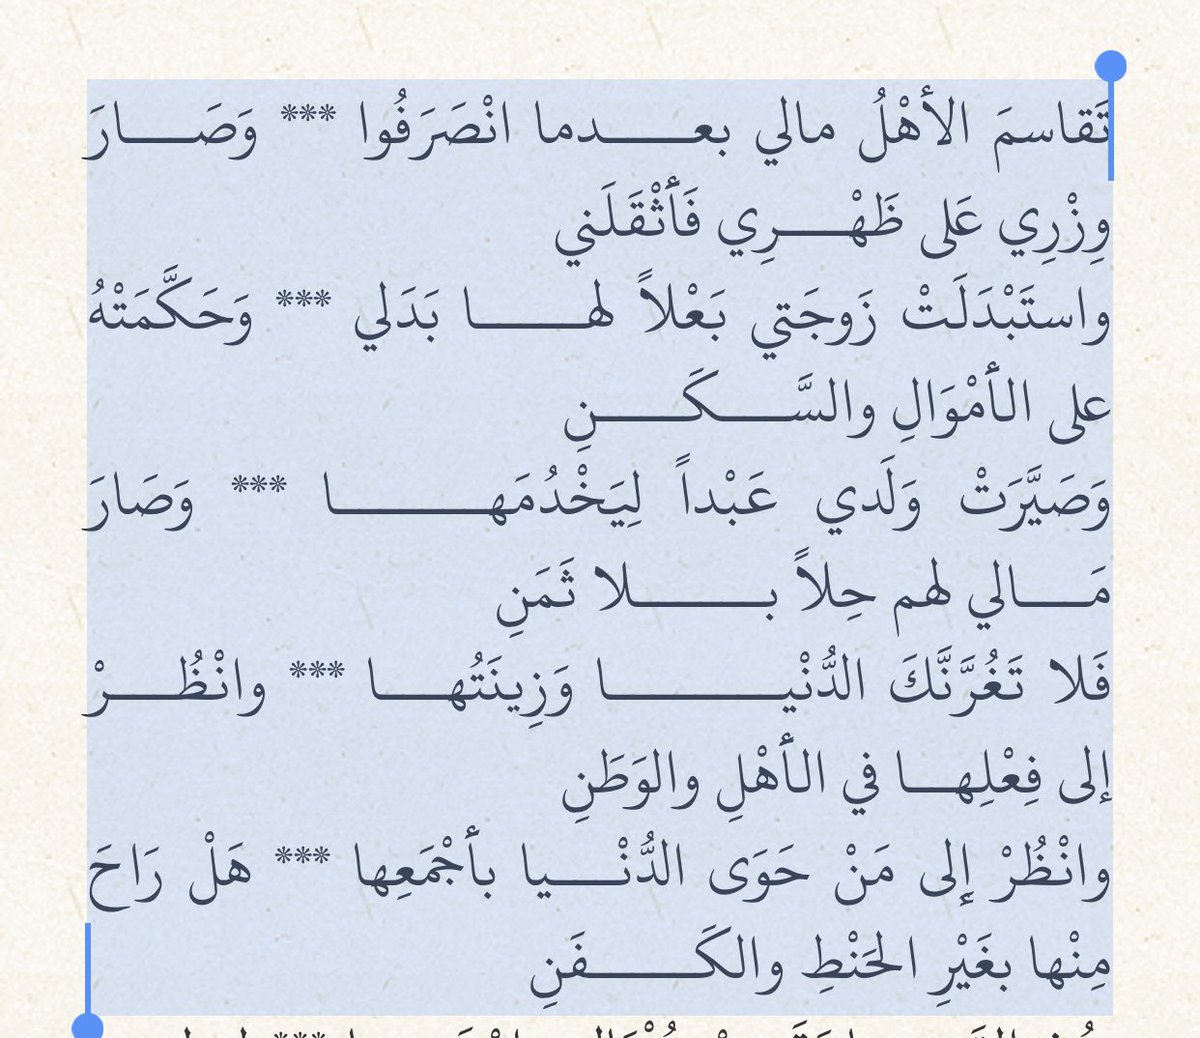 تَقاسمَ الأهْلُ مالي بعـــــدما انْصَرَفُوا *** وَصَـــــارَ
وِزْرِي عَلى ظَهْـــــرِي فَأَثْقَلَني
واستَبْدَلَتْ زَوجَتي بَعْلاً لهـــــا بَدَلي *** وَحَكَّمَتْهُ
على الأَمْوَالِ والسَّـــــكَـــــنِ
وَصَيَّرَتْ وَلَدي عَبْداً لِيَخْدُمَهـــــا *** وَصَارَ
مَـــــالي لهم حِلاً بـــــلا ثَمَنِ
فَلا تَغُرَّنَّكَ الدُّنْيـــــا وَزِينَتُهـــــا *** وانْظُـــــرْ
إلى فِعْلِهـــــا في الأَهْلِ والوَطَنِ
وانْظُرْ إلى مَنْ حَوَى الدُّنْـــــيا بأَجْمَعِها *** هَلْ رَاحَ
مِنْها بغَيْرِ الحَنْطِ والكَـــــفَنِ